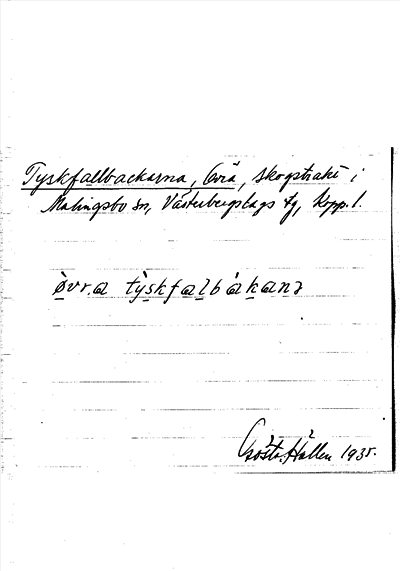 Tyskfallbackarna, Övra, skogstrakt i
Malingsbo sn, Västerbergslags tg, Kopp. l.
ø̀vra tỳskfalbàkanɜ
Gösta Hallen 1935.